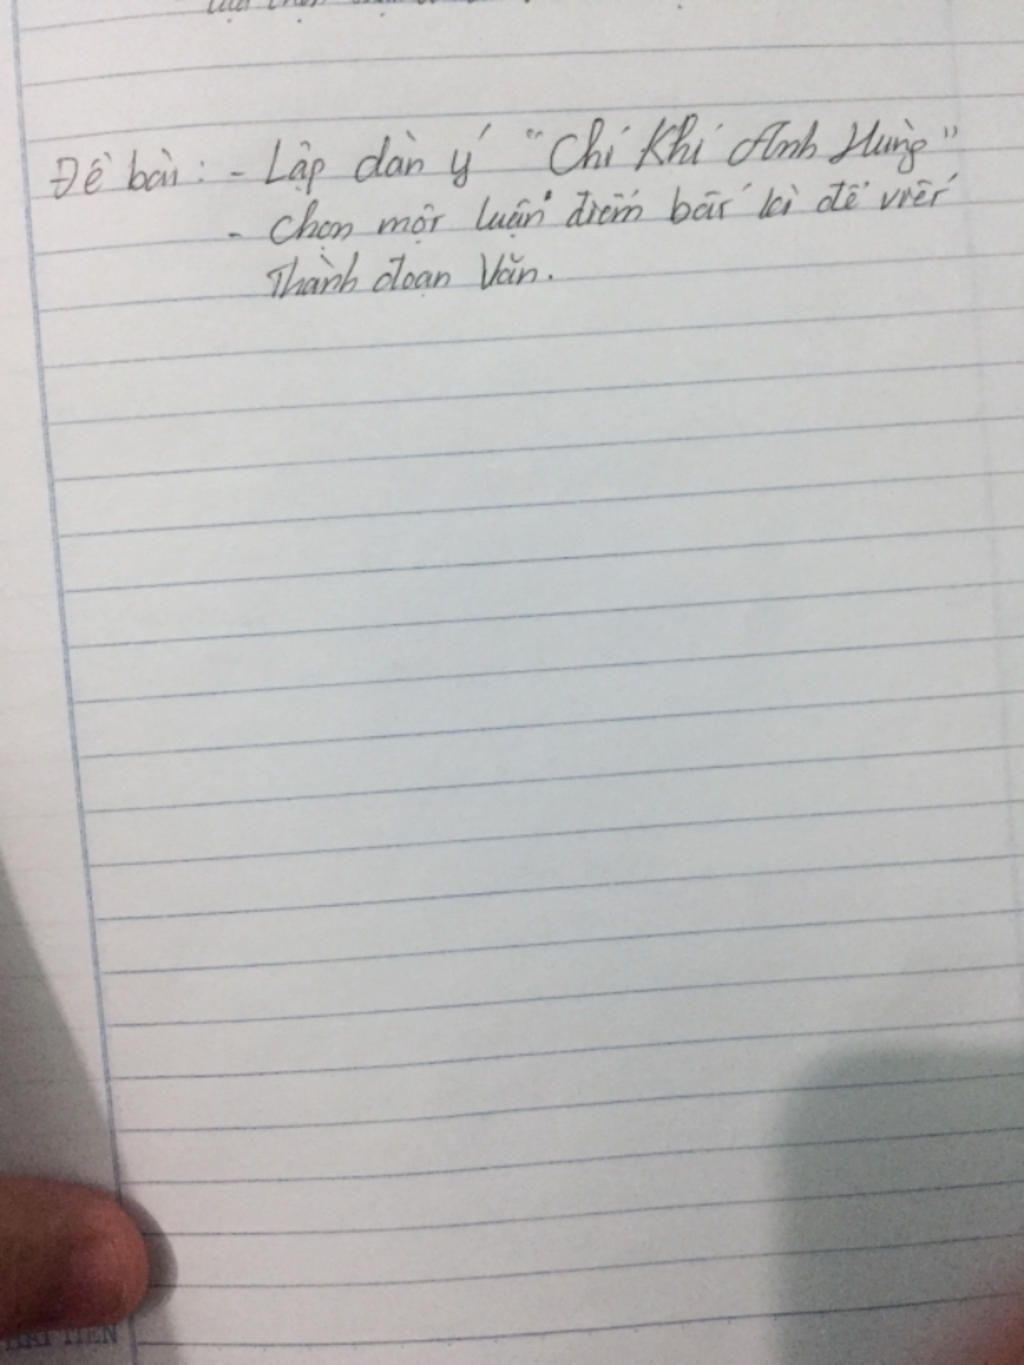 Đề bài: - Lập dàn ý "Chí Khí Anh Hùng"
- Chọn một luận điểm bất kì để viết
Thành đoạn Văn.
HẢI TIẾN